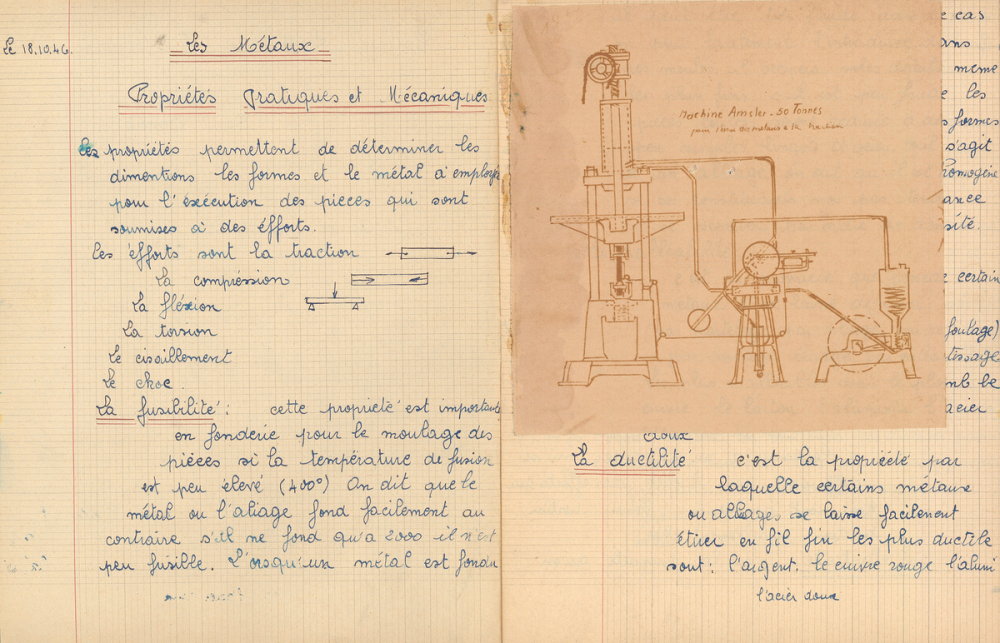 Le 18.10.46
Les Métaux
Propriétés pratiques et Mécaniques
Ces propriétés permettent de déterminer les
dimentions les formes et le métal à employe
pour l'exécution des pieces qui sont
soumises à des éfforts.
Les éfforts sont la traction
la compréssion
la fléxion
La torsion
Le cisaillement
Le choc.
La fusibilité : cette propriété est importante
en fonderie pour le moulage des
pièces si la température de fusion
est peu élevé (400°) On dit que le
métal ou l'aliage fond facilement au
contraire s'il ne fond qu'a 2000 il n'est
peu fusible. L'orsqu'un métal est fondu
Machine Amsler - 50 Tonnes
pour à la traction
cas
ans
meme
les
formes
s'agit
homogéne
ance
sité.
certain
foulage)
tissage
nb le
acier
doux
La ductilité c'est la propriéété par
laquelle certains métaux
ou alliages se laisse facilement
étirer en fil fin les plus ductile
sont : l'argent. le cuivre rouge l'alumi
l'acier doux